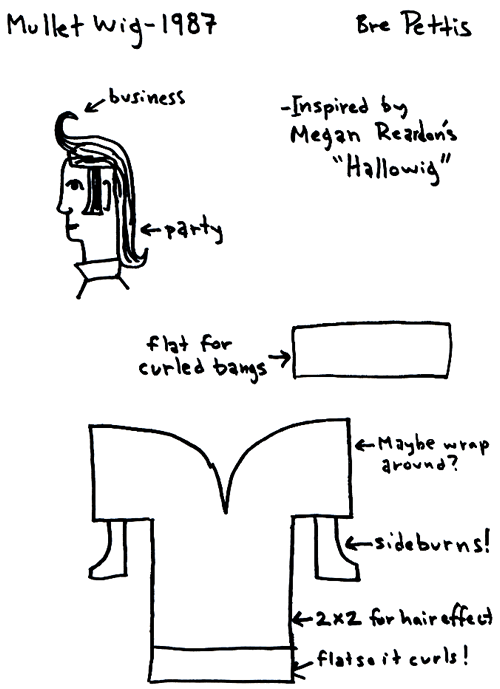 Mullet Wig-1987
Bre Pettis
business
-Inspired by
Megan Reardon's
"Hallowig"
party
flat for
curled bangs
Maybe wrap
around?
sideburns!
2x2 for hair effect
flat so it curls!